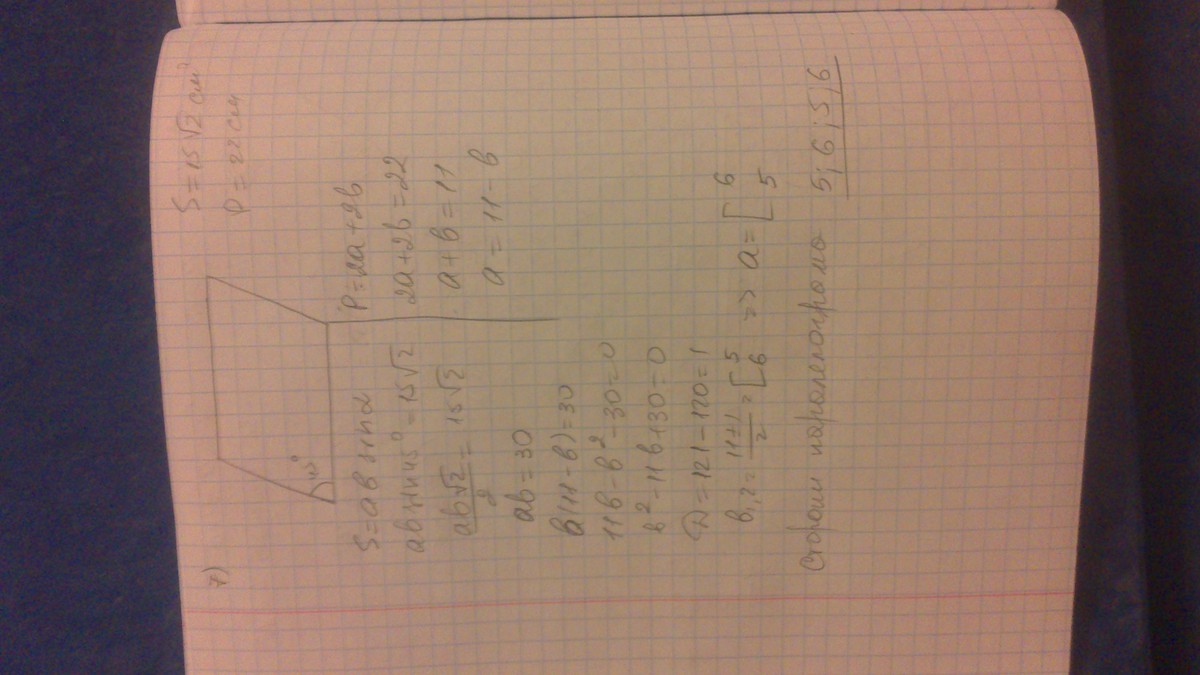 7)
S = 15√2 см²
P = 22 см
45°
S = ab sin α
ab sin 45° = 15√2
ab√2/2 = 15√2
ab = 30
b(11-b) = 30
11b - b² - 30 = 0
b² - 11b + 30 = 0
D = 121 - 120 = 1
b₁,₂ = (11±1)/2 = [5 6 => a = [6 5
P = 2a + 2b
2a + 2b = 22
a + b = 11
a = 11 - b
Стороны паралелограмма 5; 6; 5; 6